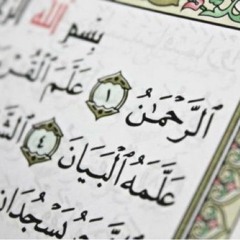 بِسْمِ ٱللَّهِ ٱلر
ٱلرَّحْمَـٰنُ ١ عَلَّمَ ٱلْقُرْ
عَلَّمَهُ ٱلْبَيَانَ ٤ ٱلشَّ
يَسْجُدَانِ